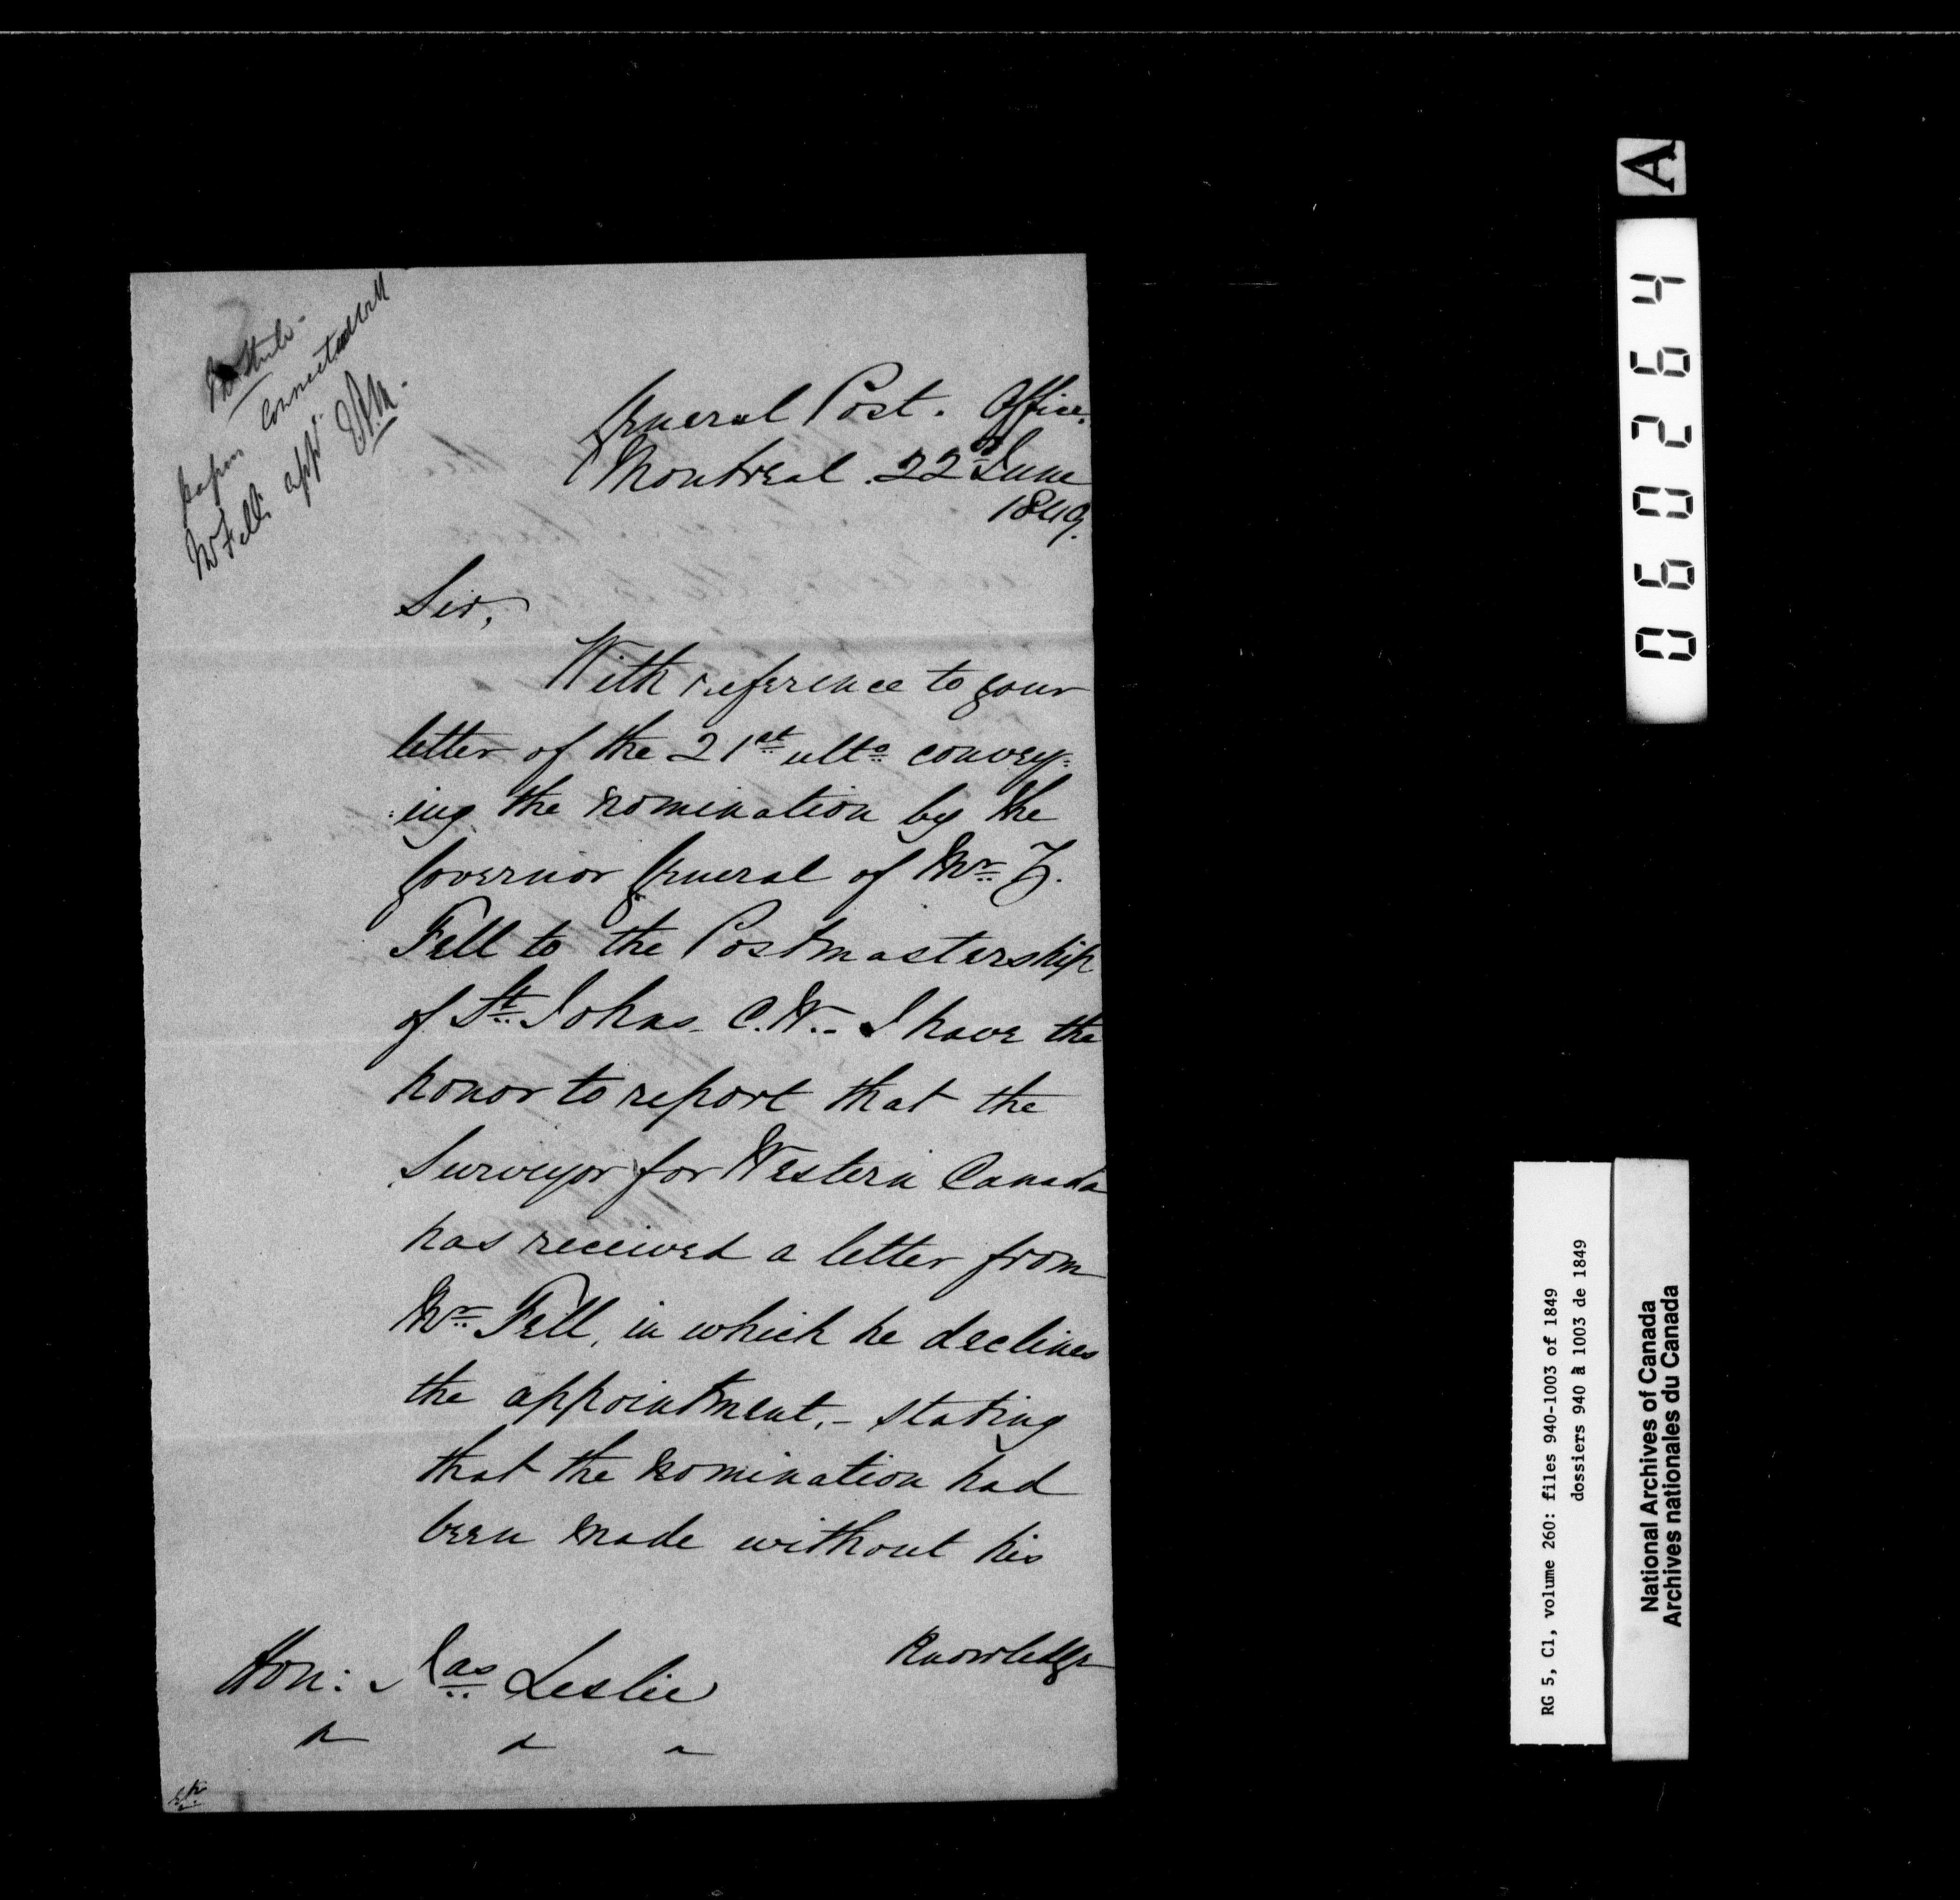 papers connected with
Mr Fell's appt
General Post. Office.
Montreal. 22d June
1849.
Sir,
With reference to your
letter of the 21st ulto convey=
:ing the nomination by the
Governor General of Mr Z.
Fell to the Postmastership
of St. Johns C.W.- I have the
honor to report that the
Surveyor for Western Canada
has received a letter from
Mr Fell, in which he declines
the appointment,- stating
that the nomination had
been made without his
Knowledge
Hon: Jas Leslie
A
060264
RG 5, C1, volume 260: files 940-1003 of 1849
dossiers 940 à 1003 de 1849
National Archives of Canada
Archives nationales du Canada